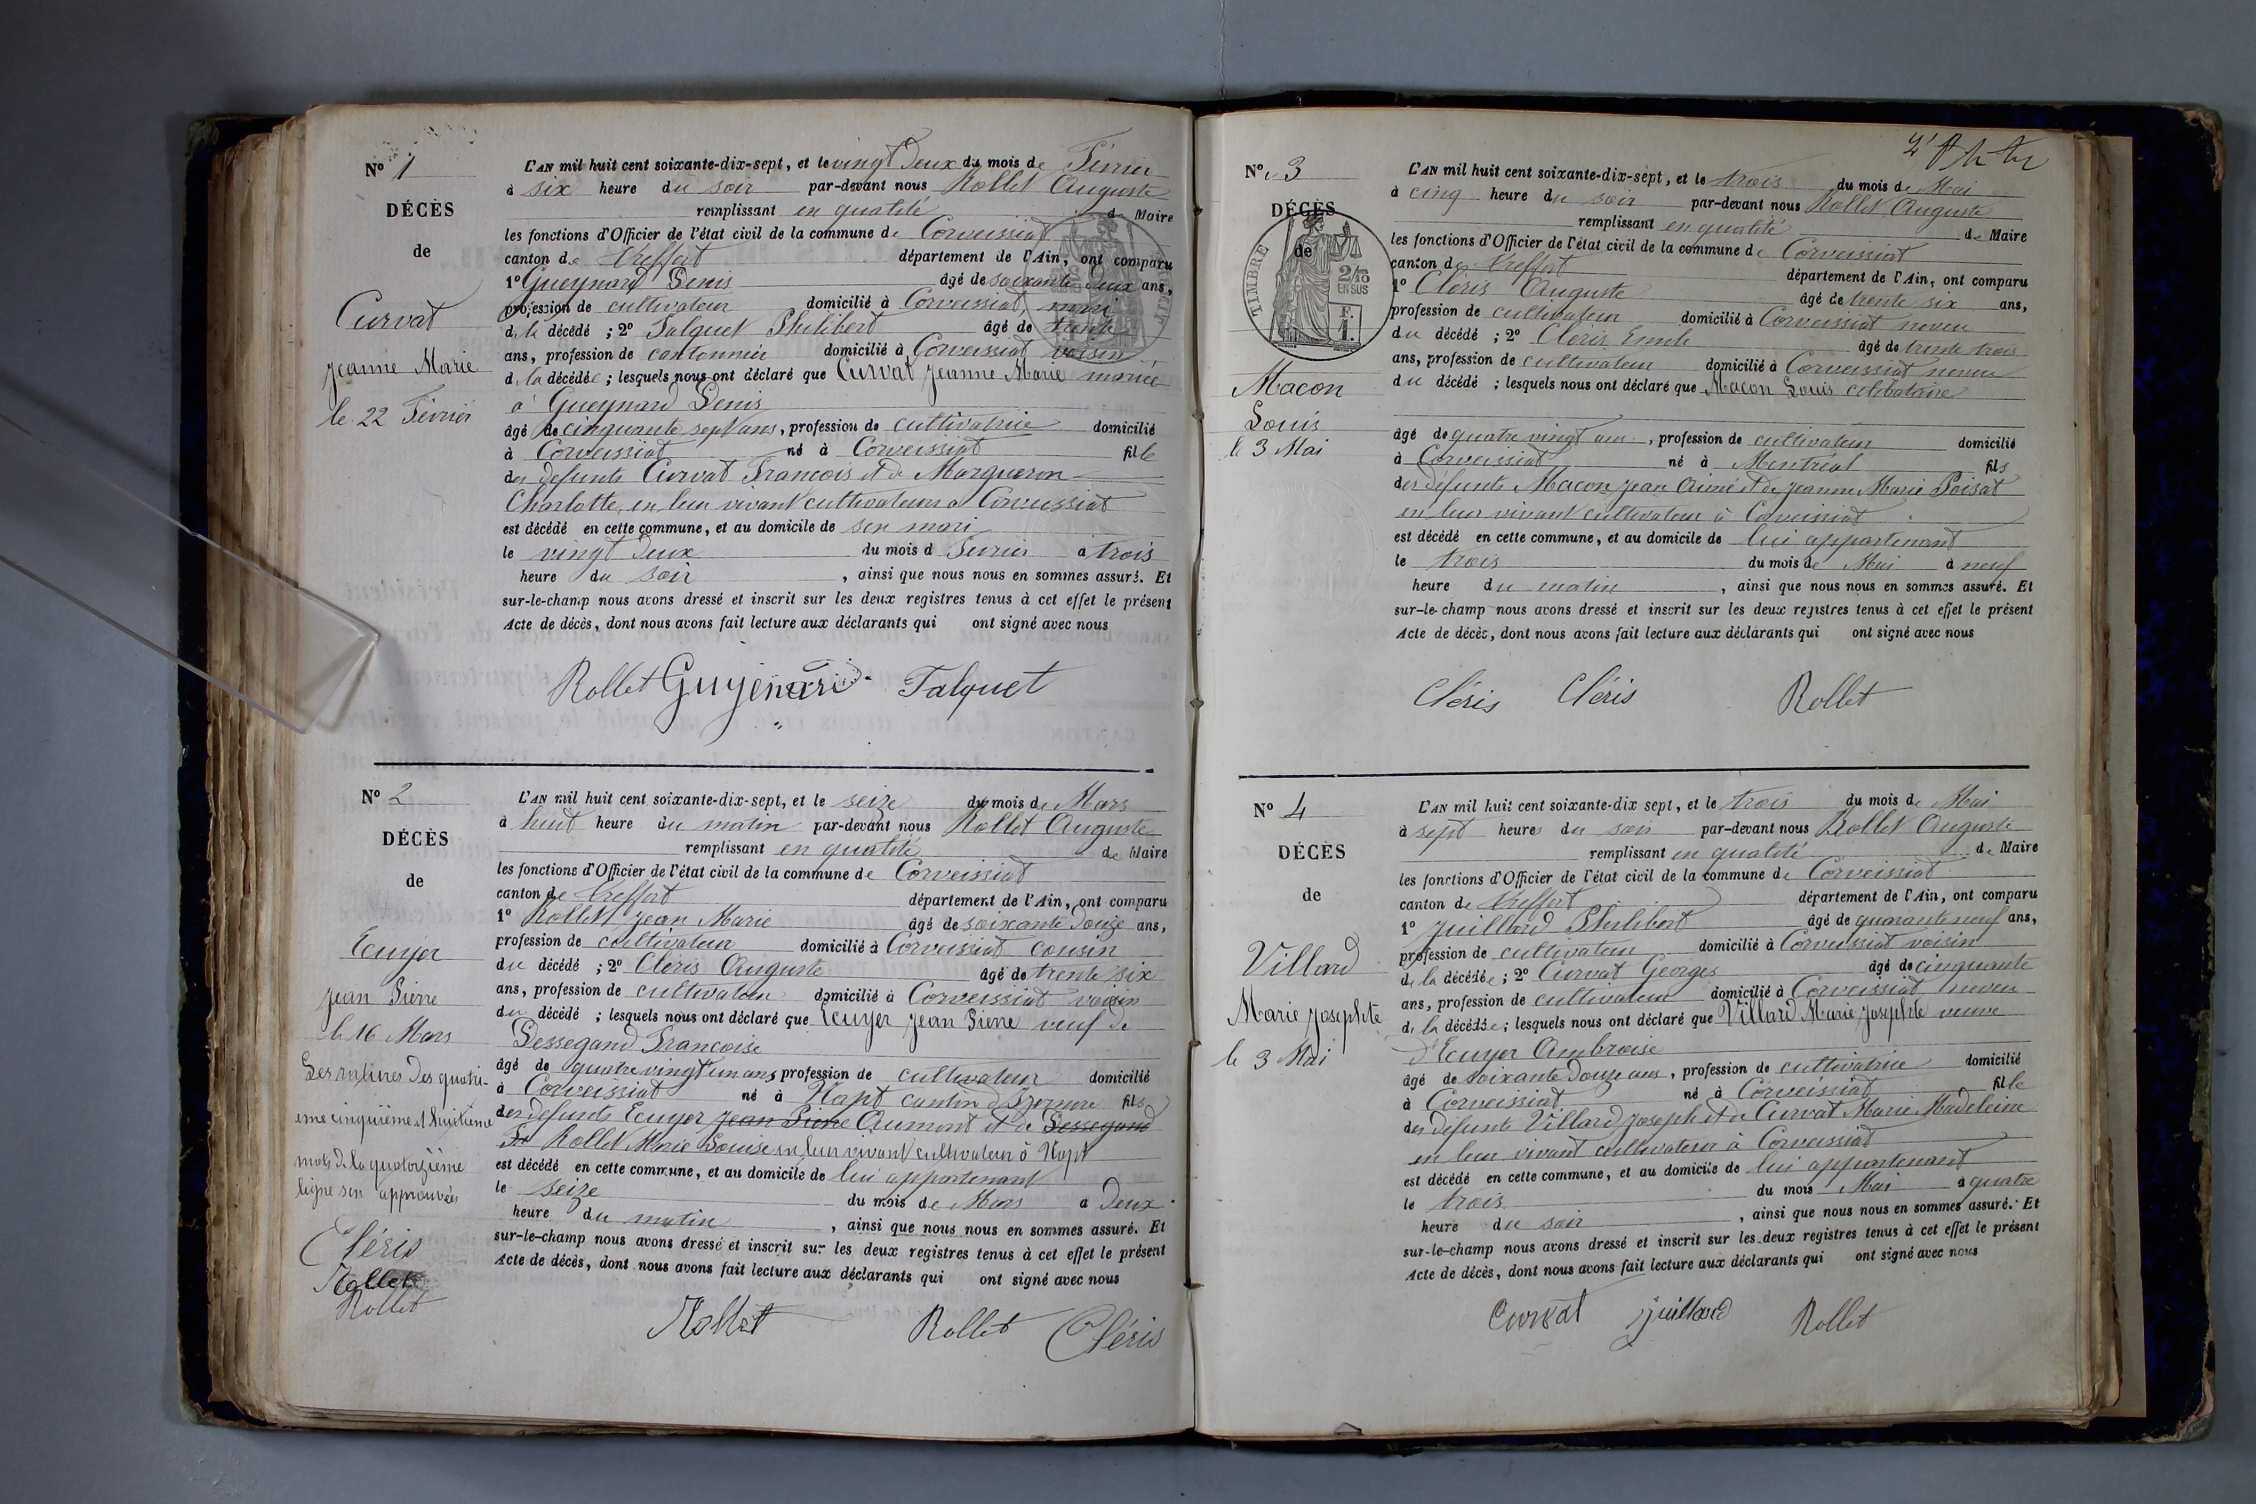 No 1
DÉCÈS
de
Curvat
Jeanne Marie
le 22 Février
L'AN mil huit cent soixante-dix-sept, et le vingt deux du mois de Février
à six heure du soir par-devant nous Rollet Auguste
remplissant en qualité de Maire
les fonctions d'Officier de l'état civil de la commune de Corveissiat
canton de Treffort département de l'Ain, ont comparu
1o Gueynard Denis âgé de soixante deux ans,
profession de cultivateur domicilié à Corveissiat, mari
de la décédé ; 2o Falquet Philibert âgé de trente
ans, profession de cantonnier domicilié à Corveissiat voisin
de la décédée ; lesquels nous ont déclaré que Curvat Jeanne Marie mariée
à Gueynard Denis
âgé de cinquante sept ans, profession de cultivatrice domicilié
à Corveissiat né à Corveissiat fille
des defunts Curvat Francois et de Margueron
Charlotte, en leur vivant cultivateurs à Corveissiat
est décédé en cette commune, et au domicile de son mari
le vingt deux du mois d Fevrier à trois
heure du soir, ainsi que nous nous en sommes assuré. Et
sur-le-champ nous avons dressé et inscrit sur les deux registres tenus à cet effet le présent
Acte de décès, dont nous avons fait lecture aux déclarants qui ont signé avec nous
Rollet Guyenard Falquet
No 2
DÉCÈS
de
Ecuyer
Jean Pierre
le 16 Mars
Les ratures des quatri-
eme cinquième et huitième
mots de la quatorzième
ligne son approuvées
Cléris
Rollet
Rollet
L'AN mil huit cent soixante-dix-sept, et le seize du mois de Mars
à huit heure du matin par-devant nous Rollet Auguste
remplissant en qualité de Maire
les fonctions d'Officier de l'état civil de la commune de Corveissiat
canton de Treffort département de l'Ain, ont comparu
1o Rollet Jean Marie âgé de soixante douze ans,
profession de cultivateur domicilié à Corveissiat cousin
du décédé ; 2o Cleris Auguste âgé de trente six
ans, profession de cultivateur domicilié à Corveissiat voisin
du décédé ; lesquels nous ont déclaré que Ecuyer Jean Pierre veuf de
Dessegand Francoise
âgé de quatre vingt un ans profession de cultivateur domicilié
à Corveissiat né à Napt canton d fils
des defunts Ecuyer Jean Pierre Aumont et de Dessegand
Rollet Marie Louise en leur vivant cultivateur à Napt
est décédé en cette commune, et au domicile de lui appartenant
le seize du mois de Mars à Deux
heure du matin, ainsi que nous nous en sommes assuré. Et
sur-le-champ nous avons dressé et inscrit sur les deux registres tenus à cet effet le présent
Acte de décès, dont nous avons fait lecture aux déclarants qui ont signé avec nous
Rollet Rollet Cléris
No 3
DÉCÈS
de
TIMBRE
2/10
EN SUS
F.
1.
Macon
Louis
le 3 Mai
L'AN mil huit cent soixante-dix-sept, et le trois du mois de Mai
à cinq heure du soir par-devant nous Rollet Auguste
remplissant en qualité de Maire
les fonctions d'Officier de l'état civil de la commune de Corveissiat
canton de Treffort département de l'Ain, ont comparu
1o Cléris Auguste âgé de trente six ans,
profession de cultivateur domicilié à Corveissiat neveu
du décédé ; 2o Cleris Emile âgé de trente trois
ans, profession de cultivateur domicilié à Corveissiat neveu
du décédé ; lesquels nous ont déclaré que Macon Louis celibataire
âgé de quatre vingt ans, profession de cultivateur domicilié
à Corveissiat né à Montréal fils
des defunts Macon Jean Aimé et de Jeanne Marie Poisat
en leur vivant cultivateur à Corveissiat
est décédé en cette commune, et au domicile de lui appartenant
le trois du mois de Mai à neuf
heure du matin, ainsi que nous nous en sommes assuré. Et
sur-le-champ nous avons dressé et inscrit sur les deux registres tenus à cet effet le présent
Acte de décès, dont nous avons fait lecture aux déclarants qui ont signé avec nous
Cléris Cléris Rollet
No 4
DÉCÈS
de
Villard
Marie Josephte
le 3 Mai
L'AN mil huit cent soixante-dix sept, et le trois du mois de Mai
à sept heures du soir par-devant nous Rollet Auguste
remplissant en qualité de Maire
les fonctions d'Officier de l'état civil de la commune de Corveissiat
canton de Treffort département de l'Ain, ont comparu
1o Juillard Philibert âgé de quarante neuf ans,
profession de cultivateur domicilié à Corveissiat voisin
de la décédée ; 2o Curvat Georges âgé de cinquante
ans, profession de cultivateur domicilié à Corveissiat neveu
de la décédée ; lesquels nous ont déclaré que Villard Marie Josephte veuve
d'Ecuyer Ambroise
âgé de soixante douze ans, profession de cultivatrice domicilié
à Corveissiat né à Corveissiat fille
des defunts Villard Joseph et de Curvat Marie Madeleine
en leur vivant cultivateur à Corveissiat
est décédé en cette commune, et au domicile de lui appartenant
le trois du mois Mai à quatre
heure du soir, ainsi que nous nous en sommes assuré. Et
sur-le-champ nous avons dressé et inscrit sur les deux registres tenus à cet effet le présent
Acte de décès, dont nous avons fait lecture aux déclarants qui ont signé avec nous
Curvat Juillard Rollet